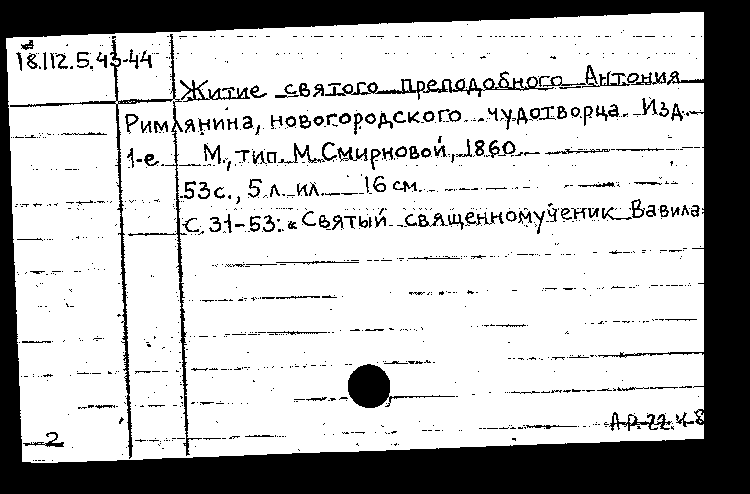 18.112.5.43-44
Житие святого преподобного Антония
Римлянина, новогородского чудотворца. Изд.
1-е М., тип. М. Смирновой, 1860.
53 с., 5 л. ил. 16 см.
С. 31-53: "Святый священномученик Вавила
2